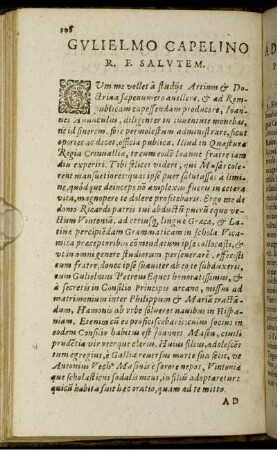 108
GVLIELMO CAPELINO
R. F. SALVTEM.
CVm me vellet à studijs Artium & Do-
ctrina sapenumero auellere, & ad Rem-
publicam capessendam producere, Ioan-
nes Auunculus, diligenter in iuuentute monebas,
ne id sinerem. fore permolestum administrare, sicut
oportet ac decet, officia publica. Illud in Quæstura
Regia Cornualliæ, te cum eodē Ioanne fratre iam
diu experiri. Tibi scilicet videri, qui Musas colerent
mansuetiores: quas ipse puer salutasses à li-
mine, quòd que deinceps nō amplexus fueris in cetera
vita, magnopere te dolere profitebaris. Ergo me do-
domo Ricardi patris tui abductū pueri equo vec-
tum Vintoniæ, ad vertus, lingua Græca, & La-
tine percipiēdam Grammaticam in schola Vica-
mica præceptoribus cōmendatum ipse collocasti, &
vt in omni genere studiorum perseuerarem, effecisti
cum fratre, donec ipse
rum Gulielmus Petreus Eques honoratissimus, &
à secretis in Consilio Principis arcano, missus ad
matrimonium inter Philippum & Mariā tractā-
dum, Hamonis ab vrbe solueret nauibus in Hispa-
niam. Etenim cū eo proficiscebaris: cuius socius in
eodem Consilio habitus est Ioannes Maso, ciuili
prudētia vir recorque clarus. Huius filius, adolescēs
tum egregius, è Gallia reuersus morte sua fecit, ve
Antonium Masinis è sorore nepos, Vintoniæ
que scholasticus sodalis meus, in filiū adoptaretur:
quicū habita fuit hæc oratio, quam ad te mitto.
AD